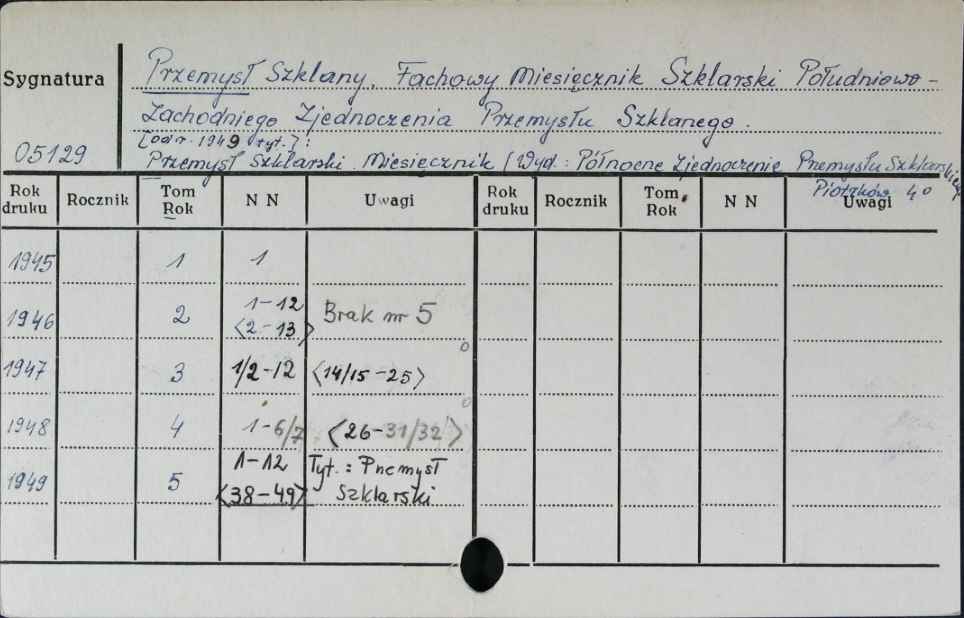 Sygnatura
Przemysł Szklany. Fachowy Miesięcznik Szklarski Południowo-
Zachodniego Zjednoczenia Przemysłu Szklanego.
[od r. 1949 tyt.]:
05129
Przemysł Szklarski. Miesięcznik (Wyd.: Północne Zjednoczenie Przemysłu Szklarskiego
Piotrków 4º
Rok druku Rocznik Tom Rok N N Uwagi Rok druku Rocznik Tom Rok N N Uwagi
1945 1 1
1946 2 1-12 Brak nr 5
<2-13>
1947 3 1/2-12 <14/15-25>
1948 4 1-6/7 <26-31/32>
1949 5 1-12 Tyt.: Przemysł
<38-49> Szklarski